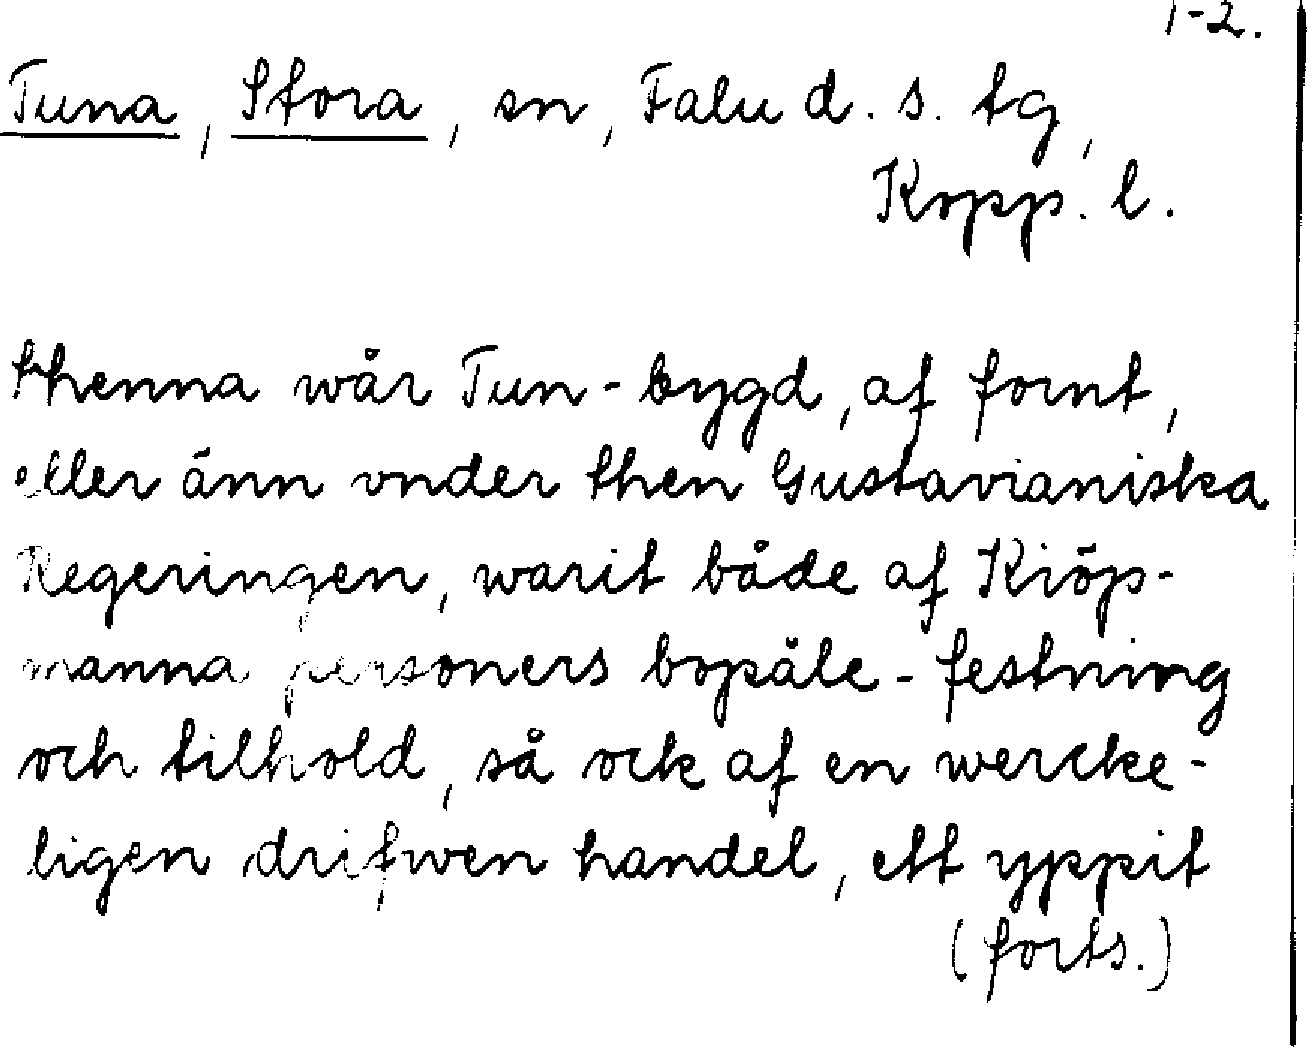 1-2.
Tuna, Stora, sn, Falu d. s. tg,
Kopp. l.
thenna wår Tun-bygd, af fornt,
eller änn vnder then Gustavianiska
Regeringen, warit både af Kiöp-
manna personers bopäle-festning
och tilhold, så ock af en wercke-
ligen drifwen handel, ett yppit
(forts.)